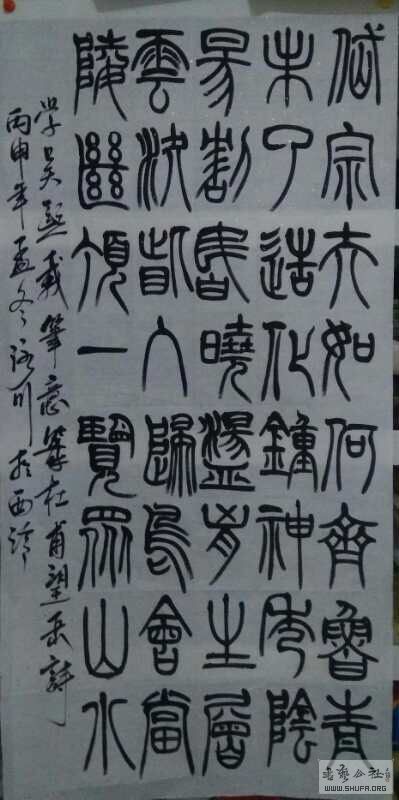 岱宗夫如何齊魯青
未了造化鍾神秀陰
昜割昏曉盪胸生層
雲決眥入歸鳥會當
陵絕頂一覽眾山小
学吴熙載筆意篆杜甫望岳詩
丙申年孟冬於西
书艺公社
WWW.SHUFA.ORG